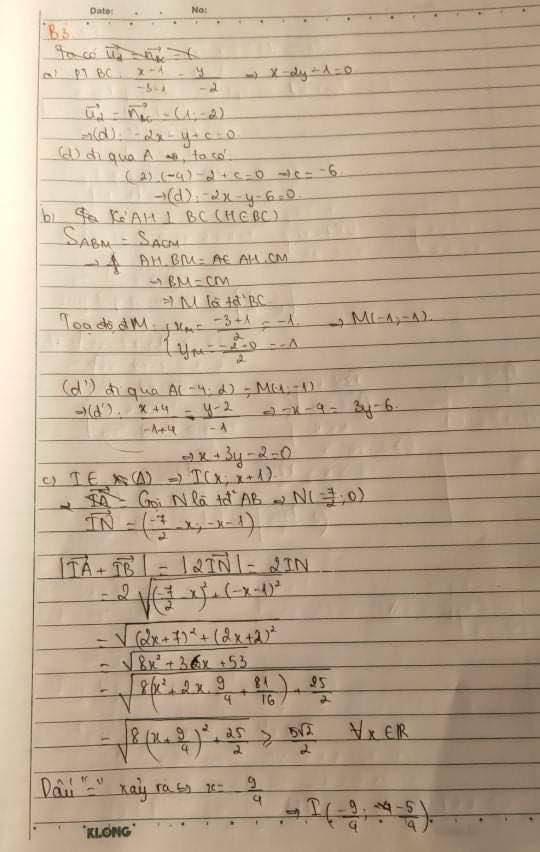 Date: No:
B3.
Ta có
a) PT BC: (x-1)/(-3-1) = y/(-2) => x-2y-1=0
u_d→ = n_BC→ = (1;-2)
=> (d): -2x-y+c=0
(d) đi qua A, ta có:
(-2).(-4)-2+c=0 => c=-6
=> (d): -2x-y-6=0
b) Kẻ AH ⊥ BC (H∈BC)
S_ABM = S_ACM
→ AH.BM = AH.CM
→ BM=CM
=> M là tđ BC
Toạ độ đ M: { x_M = (-3+1)/2 = -1 => M(-1;-1)
y_M = (-2-0)/2 = -1
(d') đi qua A(-4;2); M(1;-1)
=> (d'): (x+4)/(-1+4) = (y-2)/(-1) => -x-4 = 3y-6
=> x+3y-2=0
c) I∈ (Δ) => I(x; x+1)
Gọi N là tđ AB => N(-7/2; 0)
IN→ = (-7/2 -x; -x-1)
|IA→ + IB→| = |2IN→| = 2IN
= 2√((-7/2 -x)² + (-x-1)²)
= √((2x+7)² + (2x+2)²)
= √(8x² + 36x + 53)
= √(8(x² + 2x.9/4 + 81/16) + 25/2)
= √(8(x + 9/4)² + 25/2) ≥ 5√2/2 ∀x∈ℝ
Dấu "=" xảy ra <=> x= -9/4
=> I(-9/4; -5/4)
KLONG